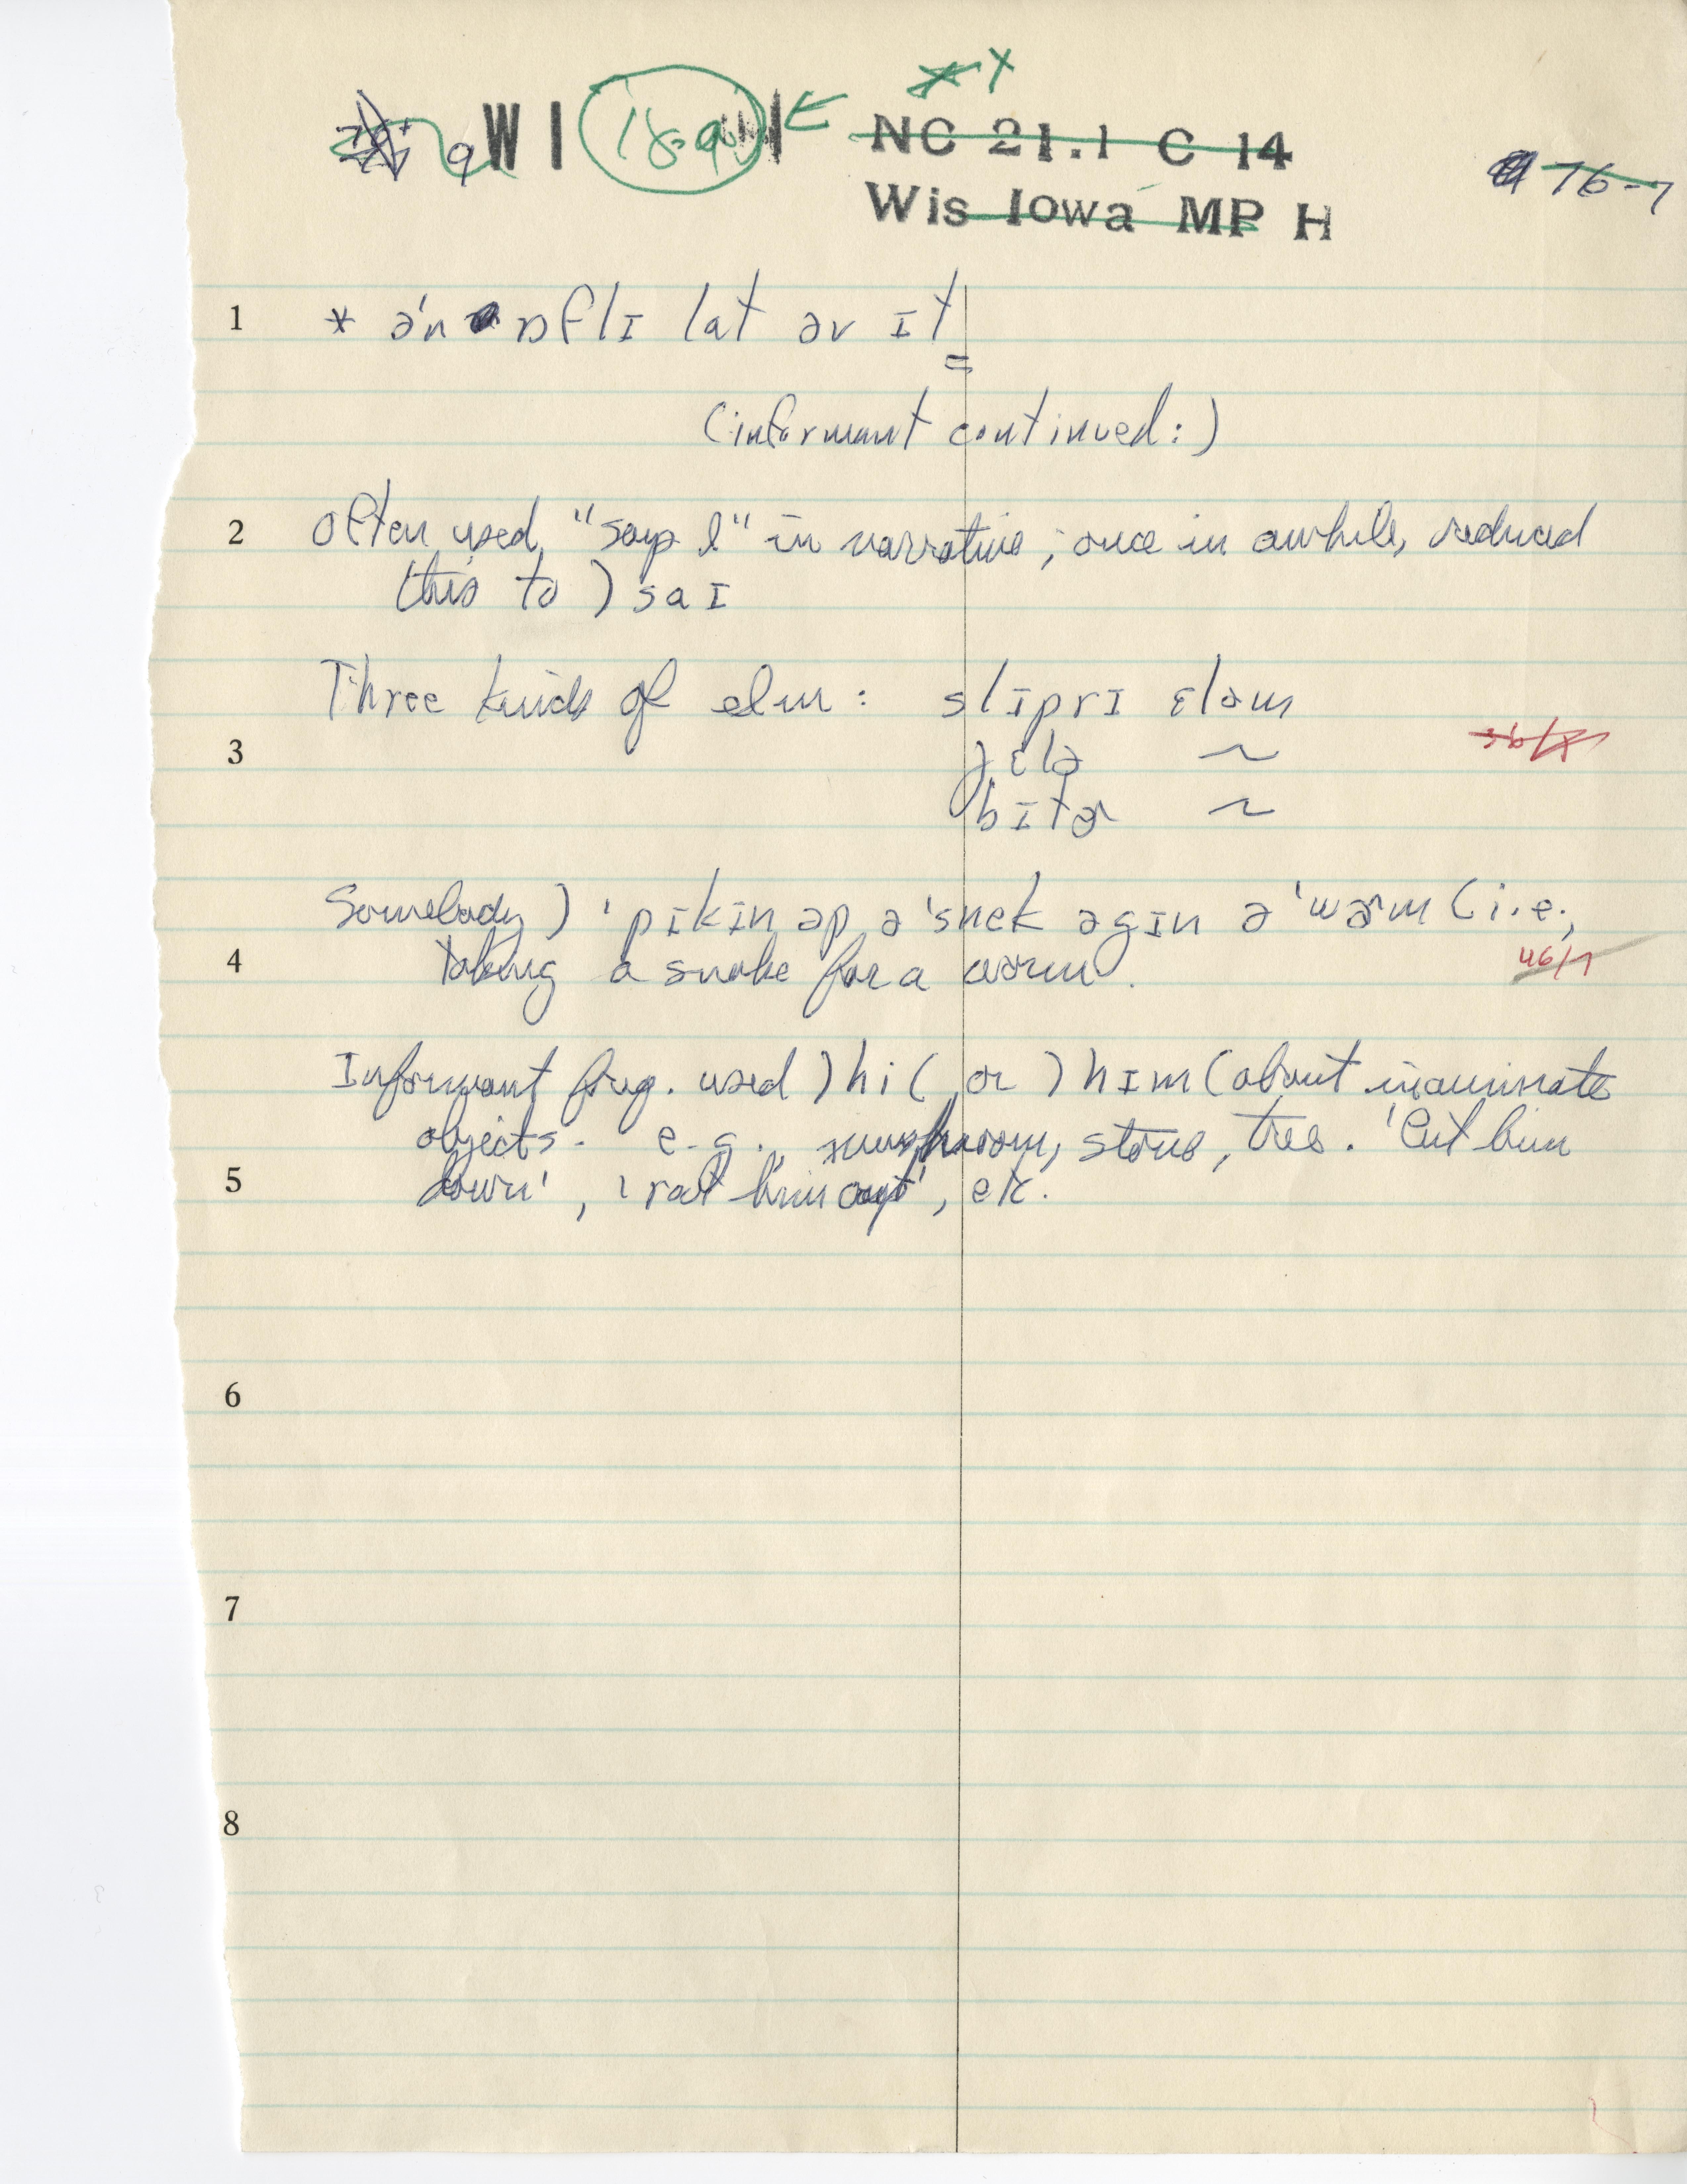 9 W I 18.9 NC 21.1 C 14
Wis Iowa MP H
76-7
1 * ən ɒflɪ lat əv ɪt
(informant continued:)
2 Often used "says I" in narrative; once in awhile, reduced
(this to ) saɪ
Three kinds of elm: slɪprɪ ɛləm
3 jɛlə ~
bɪtɚ ~
Somebody ) 'pɪkɪn əp ə 'snek əgɪn ə 'wɚm (i.e.,
4 taking a snake for a worm. 46/7
Informant freq. used ) hi ( or ) hɪm ( about inanimate
objects. e.g., mushroom, stone, tree. 'Cut him
5 down', 'rot him out', etc.
6
7
8